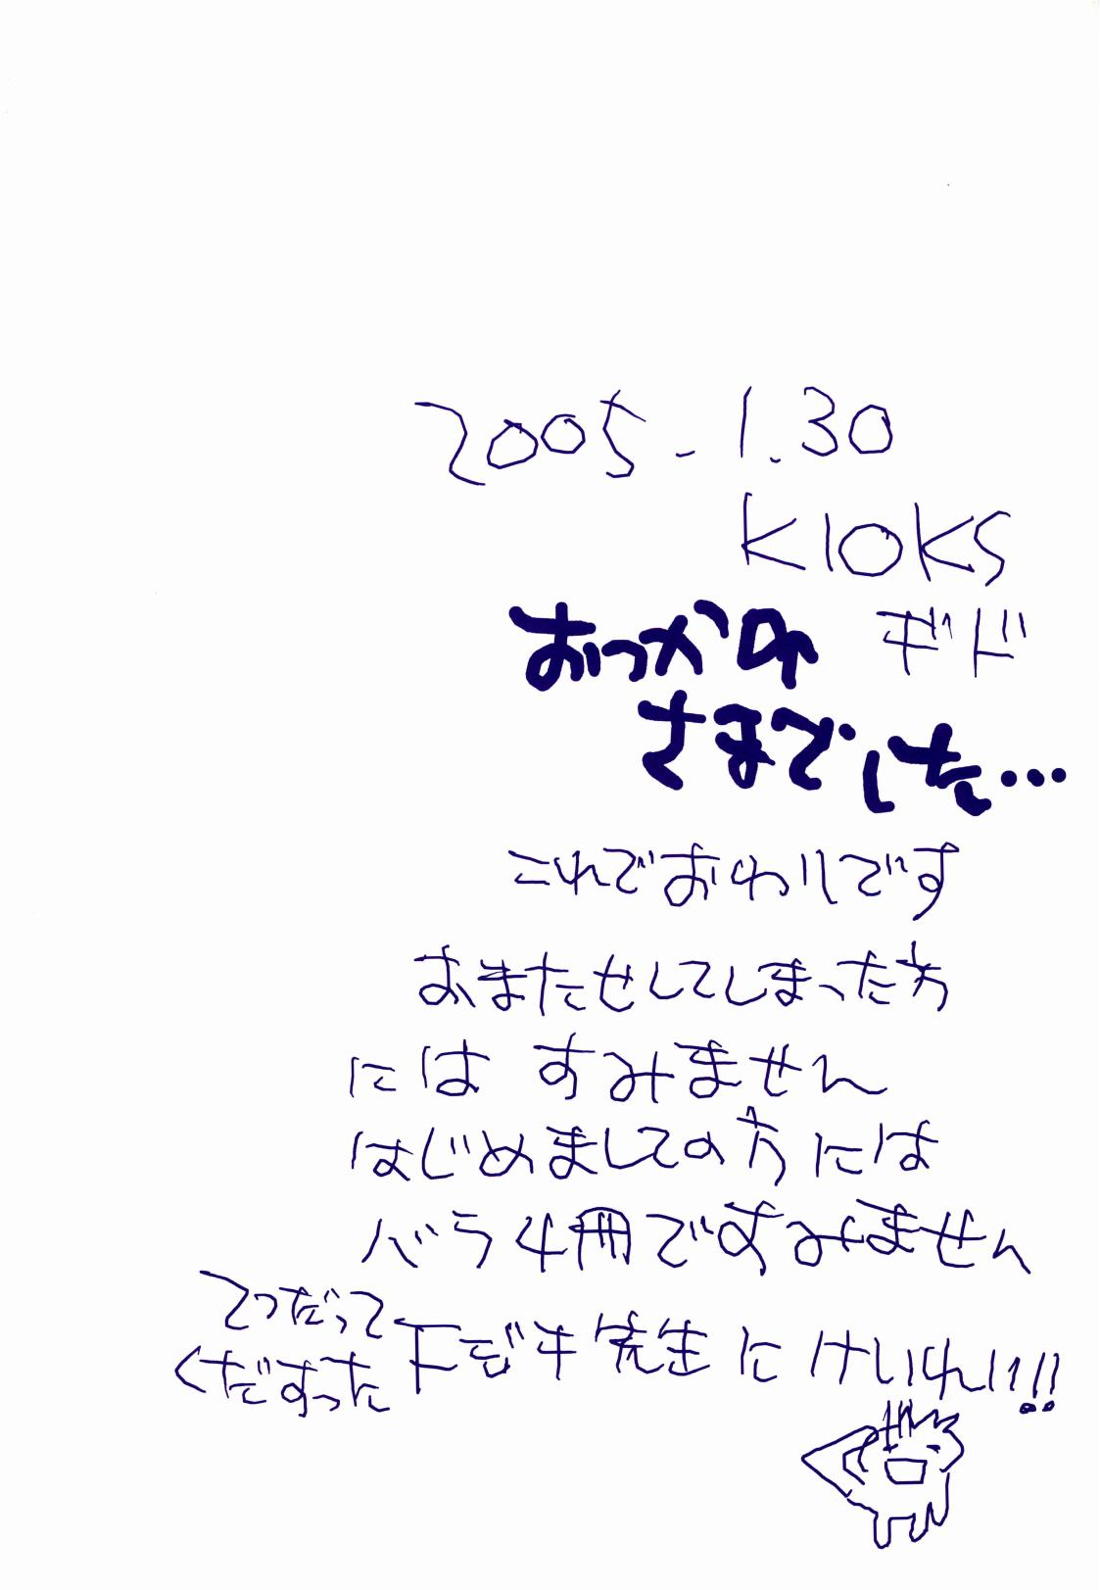 2005.1.30
KIOKS
ギド
おつかれ
さまでした…
これでおわりです
おまたせしてしまった方
には すみません
はじめましての方には
バラ4冊ですみません
てつだって
くだすった
先生にけいれい!!